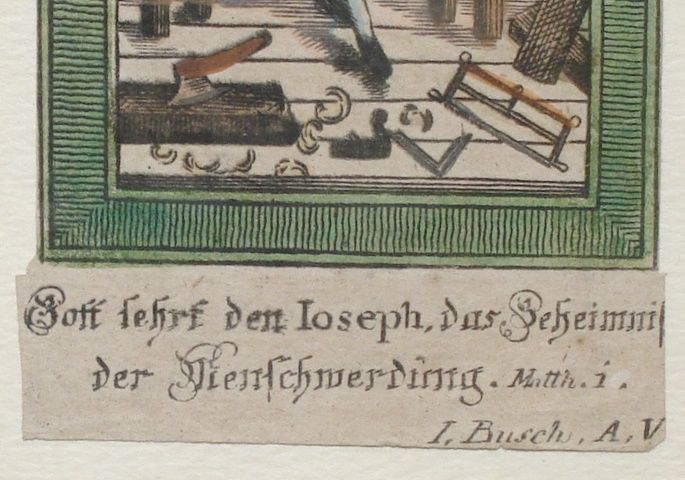 Gott lehrt den Ioseph, das Geheimnis
der Menschwerdūng. Matth. i.
I. Busch, A. V